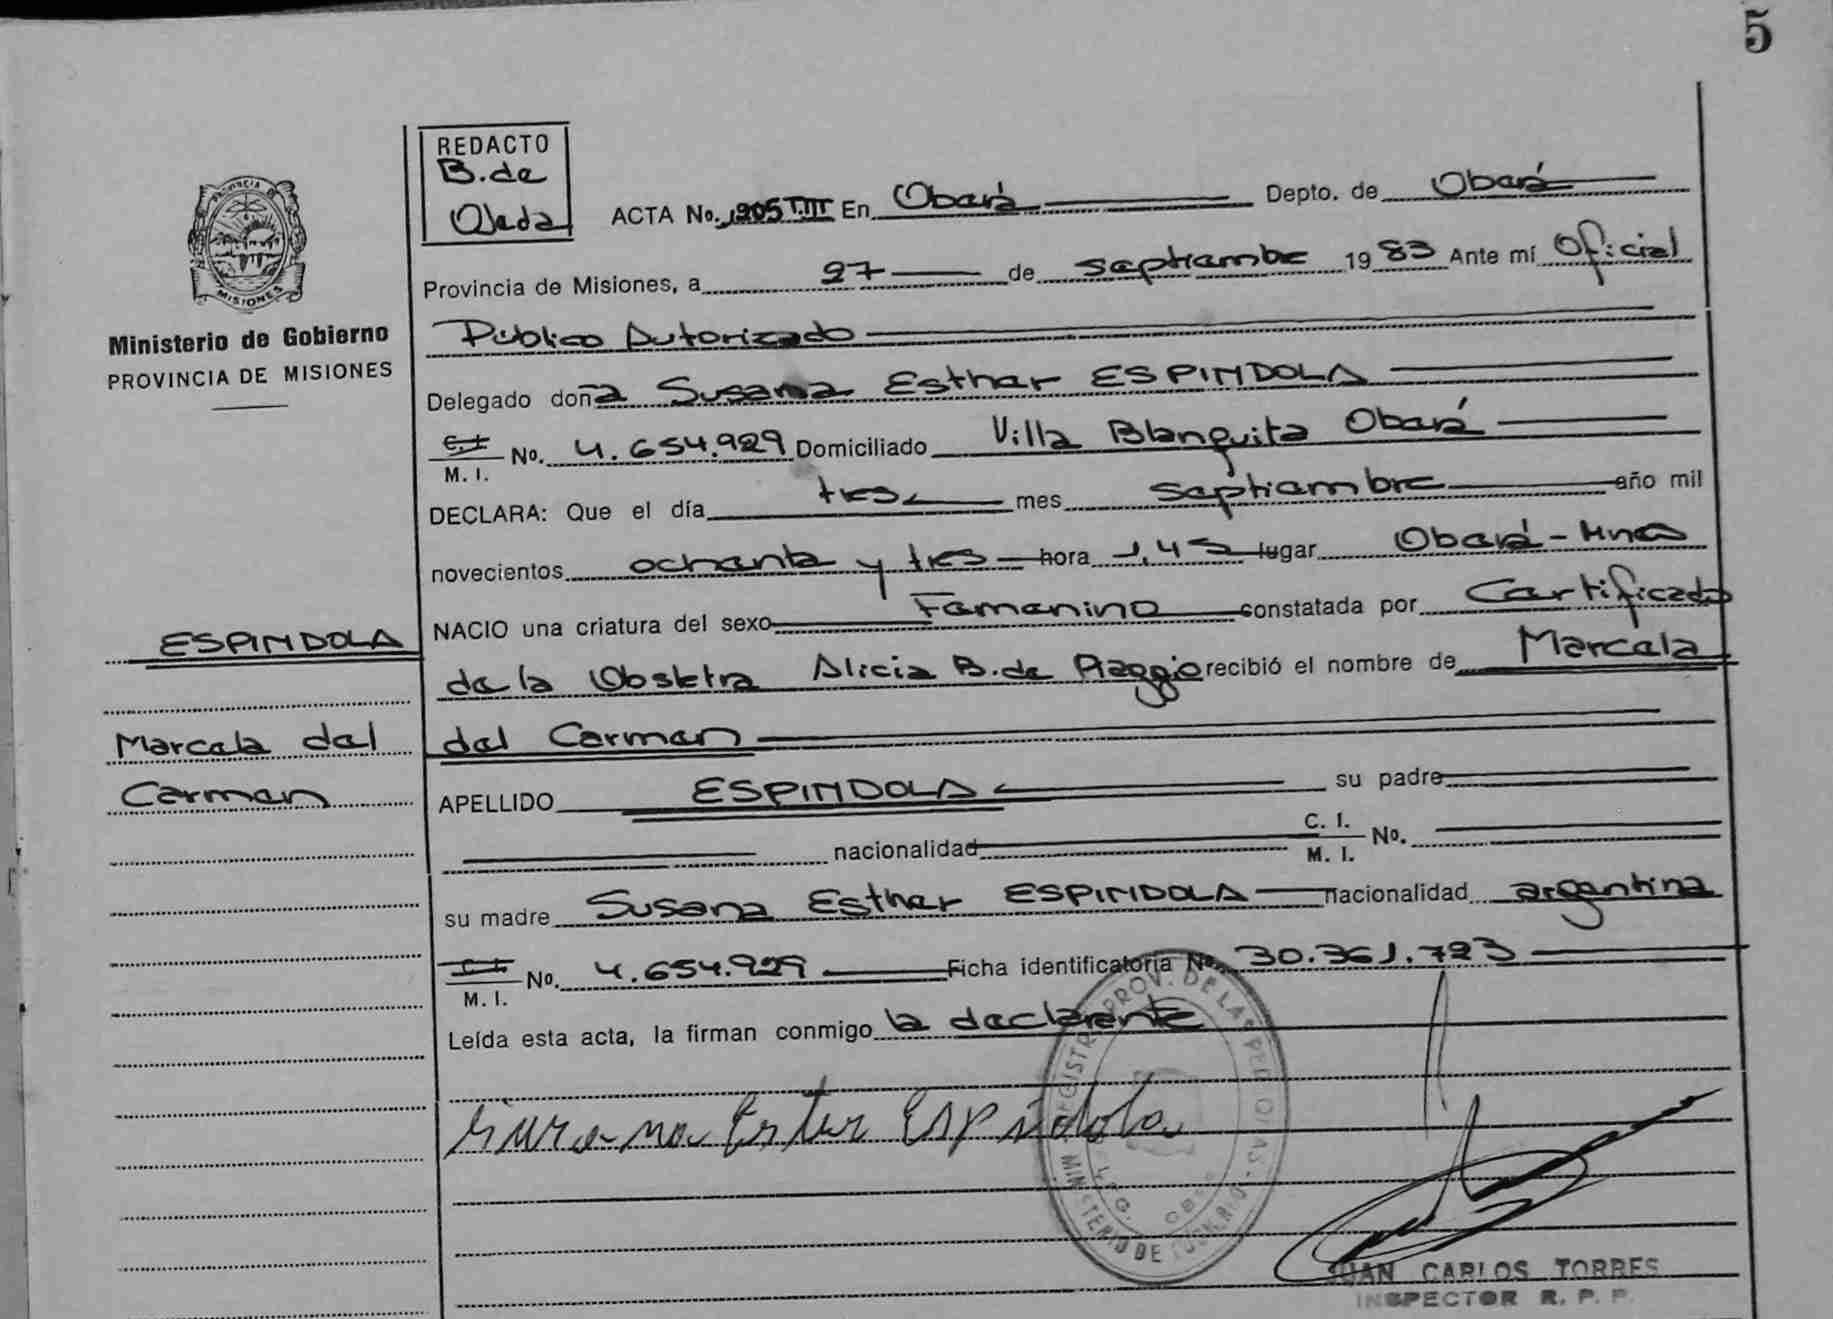 5
REDACTO
B. de
Ojeda
ACTA No. 1205 T.III En Oberá Depto. de Oberá
Provincia de Misiones, a 27 de septiembre 1983 Ante mí Oficial
Público Autorizado
PROVINCIA DE
MISIONES
Ministerio de Gobierno
PROVINCIA DE MISIONES
Delegado doña Susana Esther ESPINDOLA
C.I.
M. I. No. 4.654.929 Domiciliado Villa Blanquita Oberá
DECLARA: Que el día tres mes septiembre año mil
novecientos ochenta y tres hora 1,45 lugar Oberá - Mnes
NACIO una criatura del sexo Femenino constatada por Certificado
de la Obstetra Alicia B. de Piaggio recibió el nombre de Marcela
del Carmen
ESPINDOLA
Marcela del
Carmen
APELLIDO ESPINDOLA su padre
nacionalidad C. I.
M. I. No.
su madre Susana Esther ESPINDOLA nacionalidad argentina
C.I.
M. I. No. 4.654.929 Ficha identificatoria No. 30.361.723
Leída esta acta, la firman conmigo la declarante
Susana Ester Espindola
REGISTRO PROV. DE LAS PERSONAS
MINISTERIO DE GOBIERNO
JUAN CARLOS TORRES
INSPECTOR R. P. P.